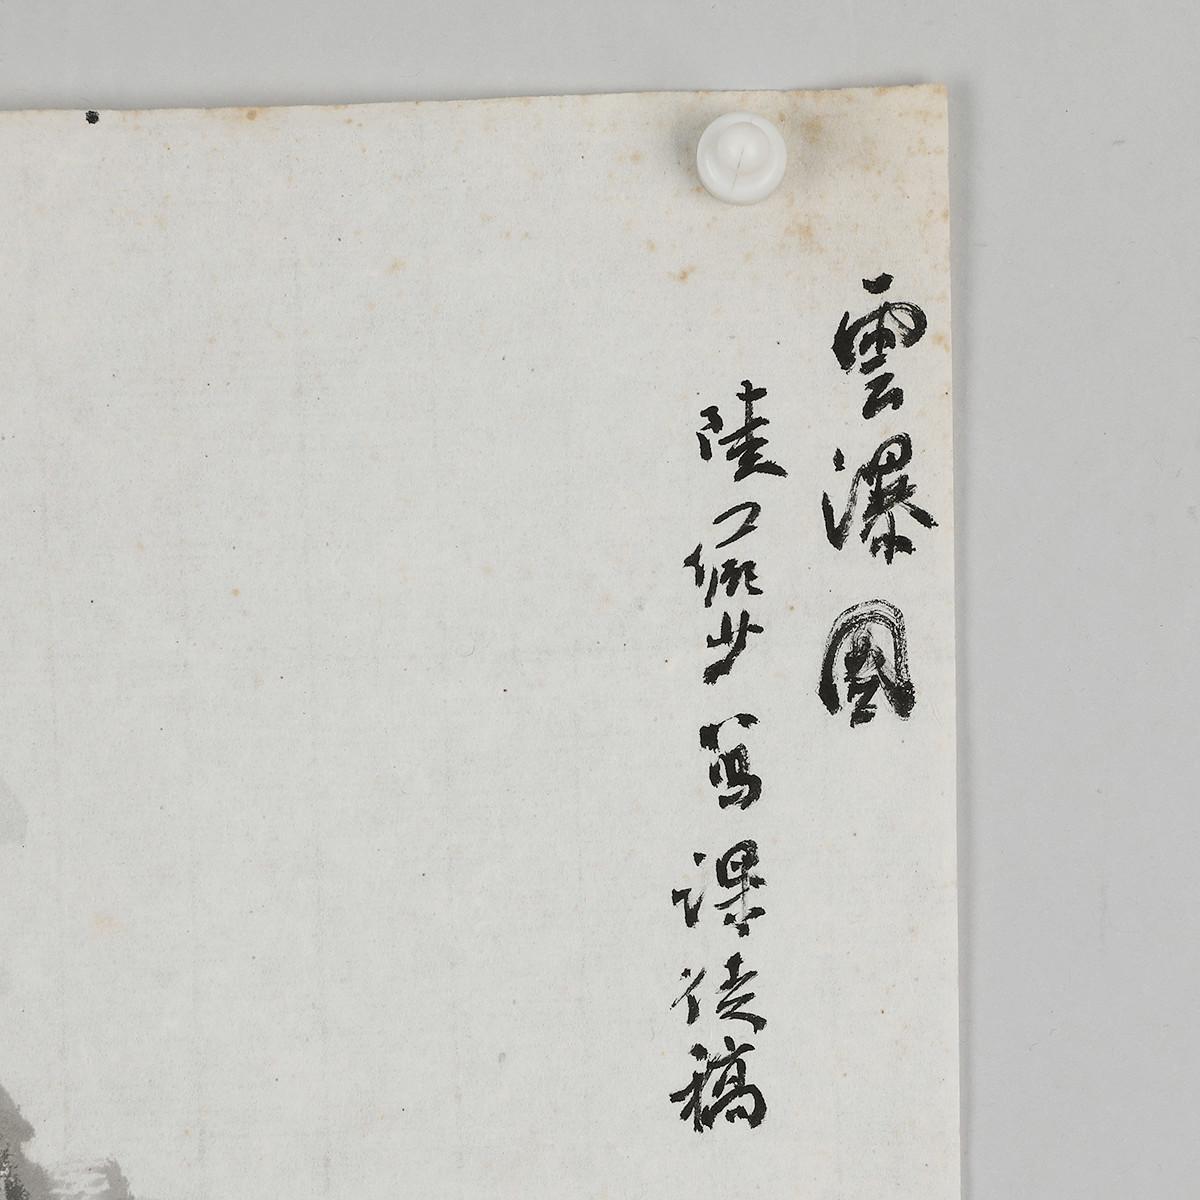 雲瀑圖
陸一儼少寫課徒稿